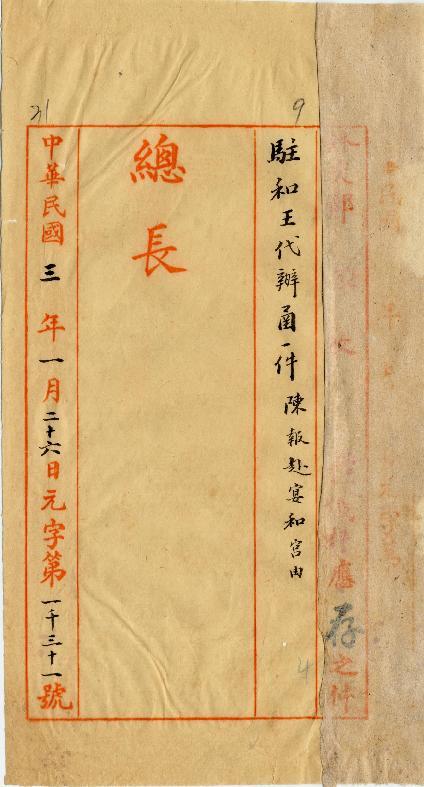 應存之件
9
駐和王代辦函一件陳報赴宴和宮由
4
總長
21
中華民國三年一月二十六日元字第一千三十一號